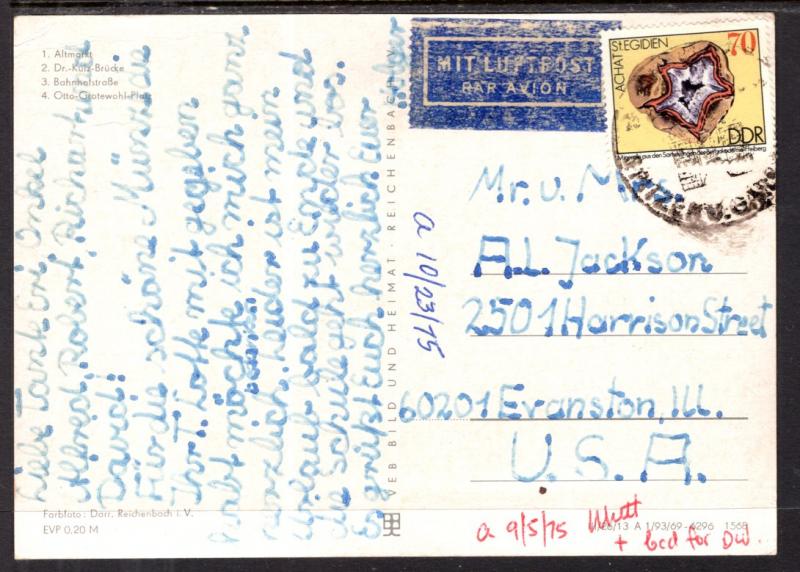 1. Altmarkt
2. Dr.-Külz-Brücke
3. Bahnhofstraße
4. Otto-Grotewohl-Platz
Liebe Tante Eri, Onkel
Alfred, Robert, Richart und
David!
Für die schöne Münze die
Ihr T. Lotte mit gegeben
habt möchte ich mich ganz
herzlich danken. Leider ist mein
Urlaub bald zu Ende und
die Schule geht wieder los.
Es grüßt Euch herzlich Euer
Farbfoto: Darr, Reichenbach i. V.
EVP 0,20 M
VEB BILD UND HEIMAT · REICHENBACH I. V.
MIT LUFTPOST
PAR AVION
ACHAT St. EGIDIEN
70
DDR
Minerale aus den Sammlungen der Bergakademie Freiberg
Mr. u. Mrs.
A.L. Jackson
2501 Harrison Street
60201 Evanston, Ill.
U.S.A.
a 10/23/75
A 1/93/69 4296 1568
a 9/5/75 Mutt
+ bcd for DW.